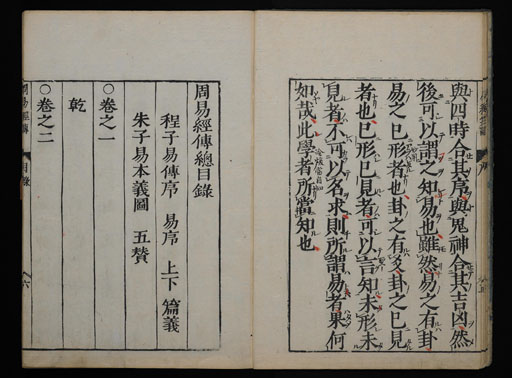 與四時合其序與鬼神合其吉凶然
後可以謂之知易也雖然易之有卦
易之已形者也卦之有爻卦之已見
者也已形已見者可以言知未形未
見者不可以名求則所謂易者果何
如哉此學者所當知也
周易經傳總目錄
程子易傳序 易序 上下篇義
朱子易本義圖 五贊
○卷之一
乾
○卷之二
周易經傳 目錄 六